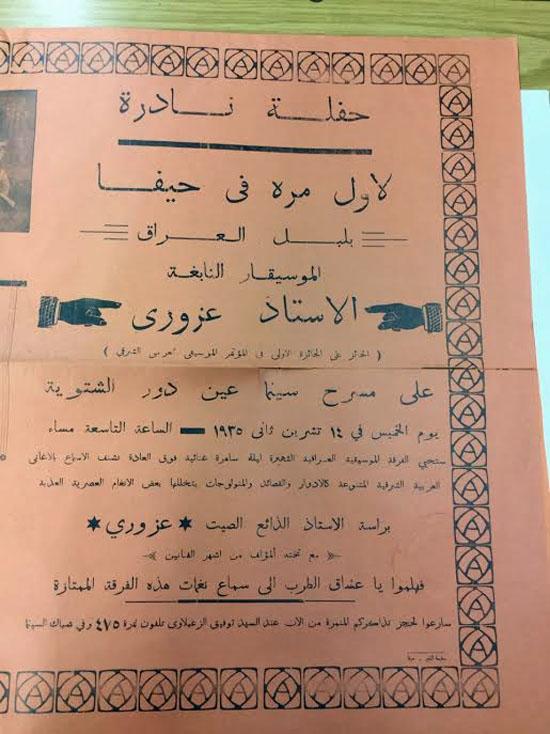 حفلة نادرة
لاول مره فى حيفا
بلبل العراق
الموسيقار النابغة
الاستاذ عزورى
( الحائز على الجائزة الاولى فى المؤتمر الموسيقى العربى الشرقي )
على مسرح سينما عين دور الشتوية
يوم الخميس في ١٤ تشرين ثانى ١٩٣٥ — الساعة التاسعة مساء
ستحيي الفرقة الموسيقية العراقية الشهيرة ليلة ساهرة غنائية فوق العادة تشنف الاسماع بالاغانى
العربية الشرقية المتنوعة كالادوار والقصائد والمنولوجات يتخللها بعض الانغام العصرية العذبة
براسة الاستاذ الذائع الصيت * عزوري *
مع تخته المؤلف من اشهر الفنانين
فهلموا يا عشاق الطرب الى سماع نغمات هذه الفرقة الممتازة
سارعوا لحجز تذاكركم المنمرة من الان عند السيد توفيق الزعبلاوى تلفون نمرة ٤٧٥ وفي شباك السينما